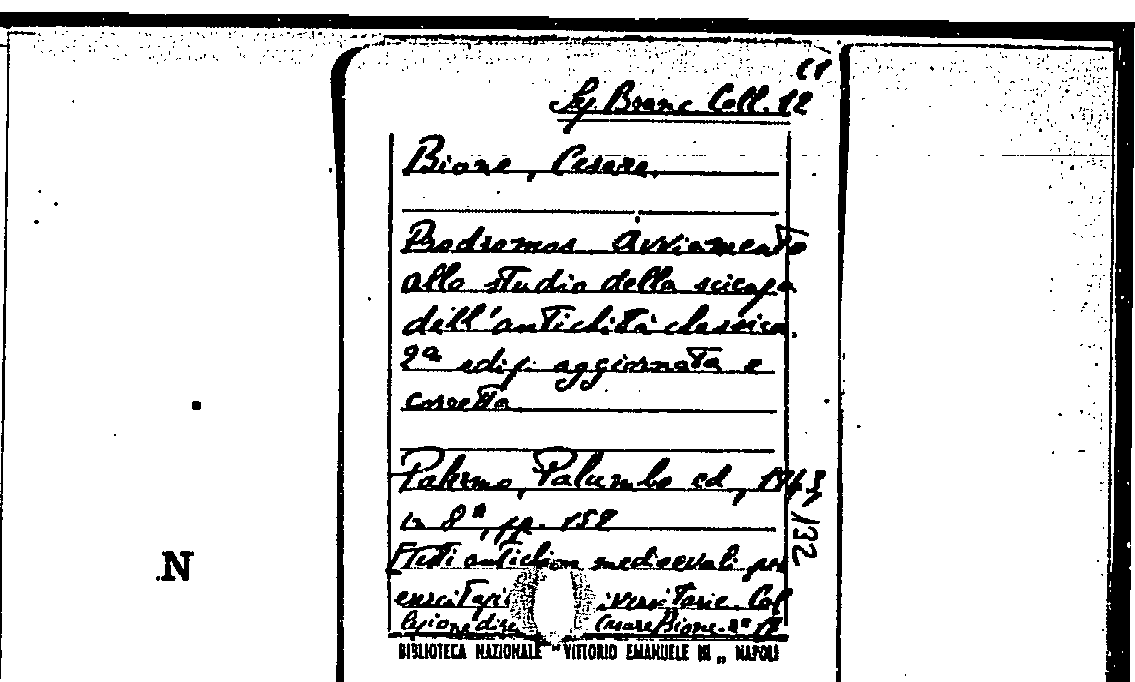 Sez. Bione Coll. 12
Bione, Cesare.
Prodromos Avviamento
allo studio della scienza
dell'antichità classica.
2ª ediz. aggiornata e
corretta
Palermo, Palumbo ed,
in 8º, pp. 152
[Testi antichi e medioevali per
Col
lezione Cesare Bione. nº 12
N
BIBLIOTECA NAZIONALE "VITTORIO EMANUELE III „ NAPOLI